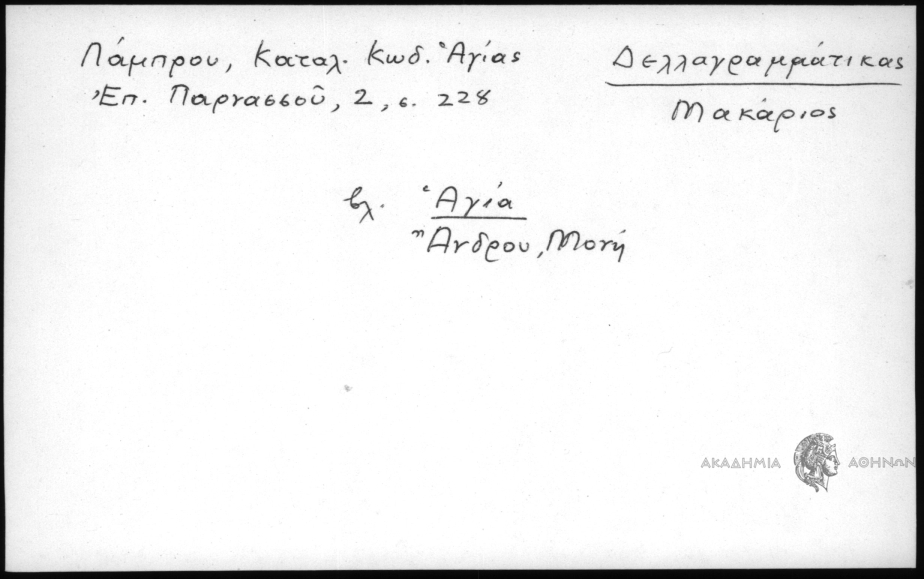 Λάμπρου, Καταλ. Κωδ. Ἁγίας
Ἐπ. Παρνασσοῦ, 2, σ. 228
Δελλαγραμμάτικας
Μακάριος
βλ. Ἁγία
Ἄνδρου, Μονή
ΑΚΑΔΗΜΙΑ ΑΘΗΝΩΝ